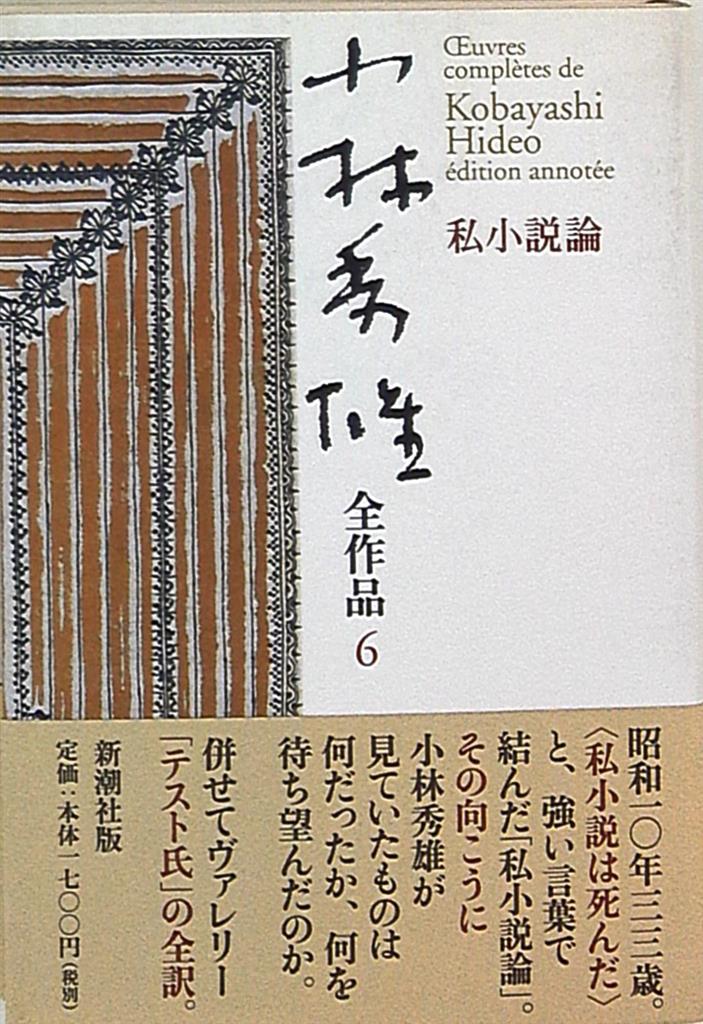 Œuvres
complètes de
Kobayashi
Hideo
édition annotée
私小説論
小林秀雄
全作品6
昭和一〇年三三歳。
〈私小説は死んだ〉
と、強い言葉で
結んだ「私小説論」。
その向こうに
小林秀雄が
見ていたものは
何だったか、何を
待ち望んだのか。
併せてヴァレリー
「テスト氏」の全訳。
新潮社版
定価：本体一七〇〇円（税別）